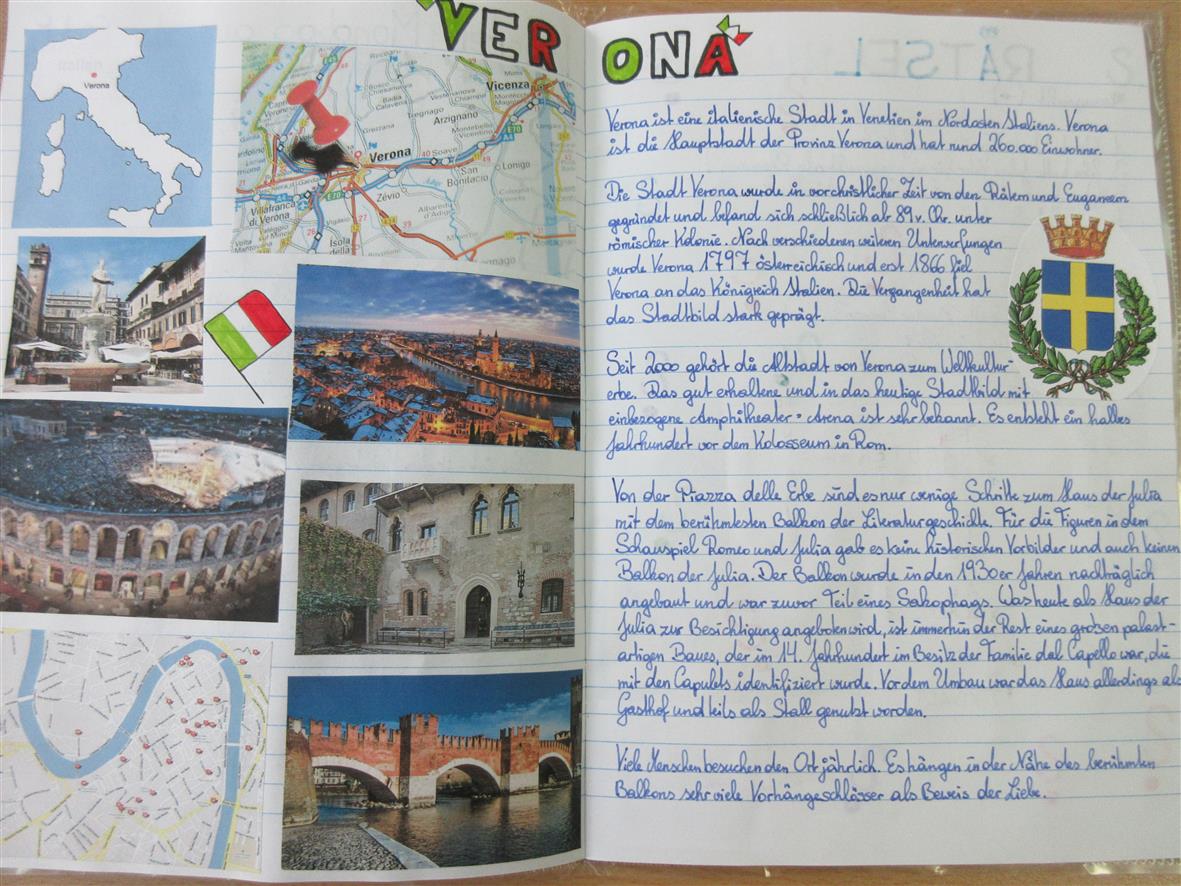 VERONA
Verona
Vicenza
Arzignano
Verona
Soave
San
Bonifacio
Lonigo
Zévio
Villafranca
di Verona
Isola
della
RÄTSEL
Verona ist eine italienische Stadt in Venetien im Nordosten Italiens. Verona
ist die Hauptstadt der Provinz Verona und hat rund 260.000 Einwohner.
Die Stadt Verona wurde in vorchristlicher Zeit von den Rätern und Euganeern
gegründet und befand sich schließlich ab 89 v. Chr. unter
römischer Kolonie. Nach verschiedenen weiteren Unterwerfungen
wurde Verona 1797 österreichisch und erst 1866 fiel
Verona an das Königreich Italien. Die Vergangenheit hat
das Stadtbild stark geprägt.
Seit 2000 gehört die Altstadt von Verona zum Weltkultur-
erbe. Das gut erhaltene und in das heutige Stadtbild mit
einbezogene Amphitheater - Arena ist sehr bekannt. Es entsteht ein halbes
Jahrhundert vor dem Kolosseum in Rom.
Von der Piazza delle Erbe sind es nur wenige Schritte zum Haus der Julia
mit dem berühmtesten Balkon der Literaturgeschichte. Für die Figuren in dem
Schauspiel Romeo und Julia gab es keine historischen Vorbilder und auch keinen
Balkon der Julia. Der Balkon wurde in den 1930er Jahren nachträglich
angebaut und war zuvor Teil eines Sakophags. Was heute als Haus der
Julia zur Besichtigung angeboten wird, ist immerhin der Rest eines großen palast-
artigen Baues, der im 14. Jahrhundert im Besitz der Familie dal Capello war, die
mit den Capulets identifiziert wurde. Vor dem Umbau war das Haus allerdings als
Gasthof und teils als Stall genutzt worden.
Viele Menschen besuchen den Ort jährlich. Es hängen in der Nähe des berühmten
Balkons sehr viele Vorhängeschlösser als Beweis der Liebe.